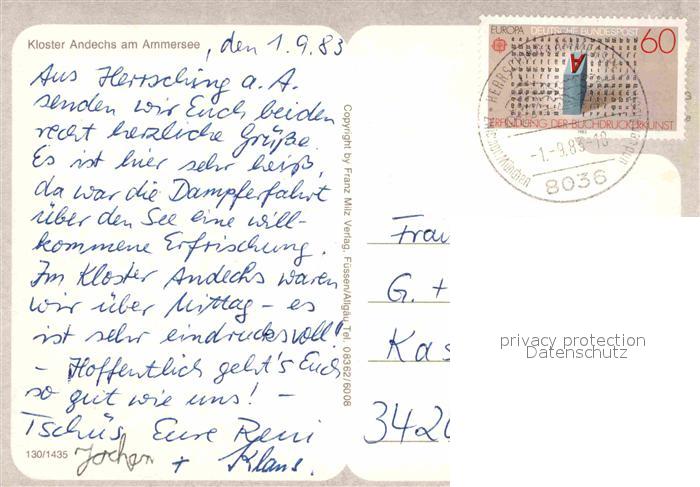 Kloster Andechs am Ammersee
, den 1.9.83
Aus Herrsching a. A.
senden wir Euch beiden
recht herzliche Grüße.
Es ist hier sehr heiß,
da war die Dampferfahrt
über den See eine will-
kommene Erfrischung.
Im Kloster Andechs waren
wir über Mittag – es
ist sehr eindrucksvoll!
– Hoffentlich geht's Euch
so gut wie uns! –
Tschüs Eure Reni
Jochen + Klaus.
130/1435
Copyright by Franz Milz Verlag, Füssen/Allgäu Tel. 08362/6008
EUROPA DEUTSCHE BUNDESPOST 60
ERFINDUNG DER BUCHDRUCKERKUNST
-1.-9.83-10
8036
Frau
G. +
Kas
3420
privacy protection
Datenschutz